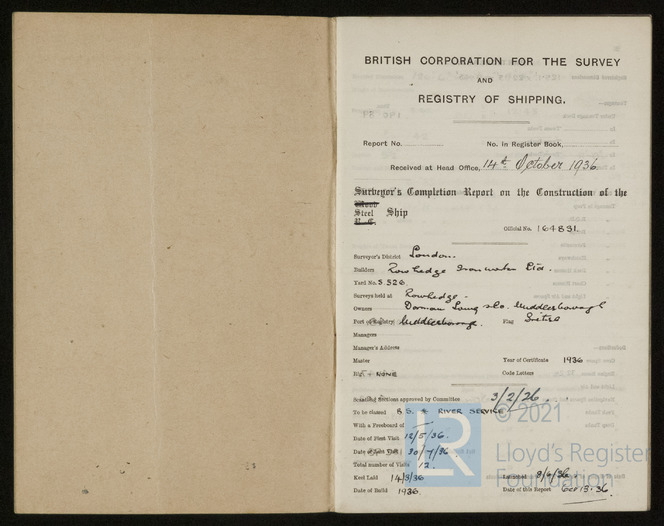 BRITISH CORPORATION FOR THE SURVEY
AND
REGISTRY OF SHIPPING.
Report No.
No. in Register Book,
Received at Head Office, 14th October 1936
Surveyor's Completion Report on the Construction of the
Wood
Steel Ship
Official No. 164831.
Surveyor's District London.
Builders Rowhedge Ironworks Ltd.
Yard No. S.526.
Surveys held at Rowhedge.
Owners Dorman Long &Co. Middlesborough
Port of Registry Middlesborough. Flag British
Managers
Manager's Address
Master Year of Certificate 1936
Rig NONE Code Letters
Scantling Sections approved by Committee 3/2/26.
To be classed B.S. * RIVER SERVICE
With a Freeboard of
Date of First Visit 12/5/36.
Date of Last Do. 30/7/36.
Total number of Visits 12.
Keel Laid 14/3/36 Launched 8/6/36.
Date of Build 1936. Date of this Report Oct 13.36.
© 2021
LR
Lloyd's Register
Foundation